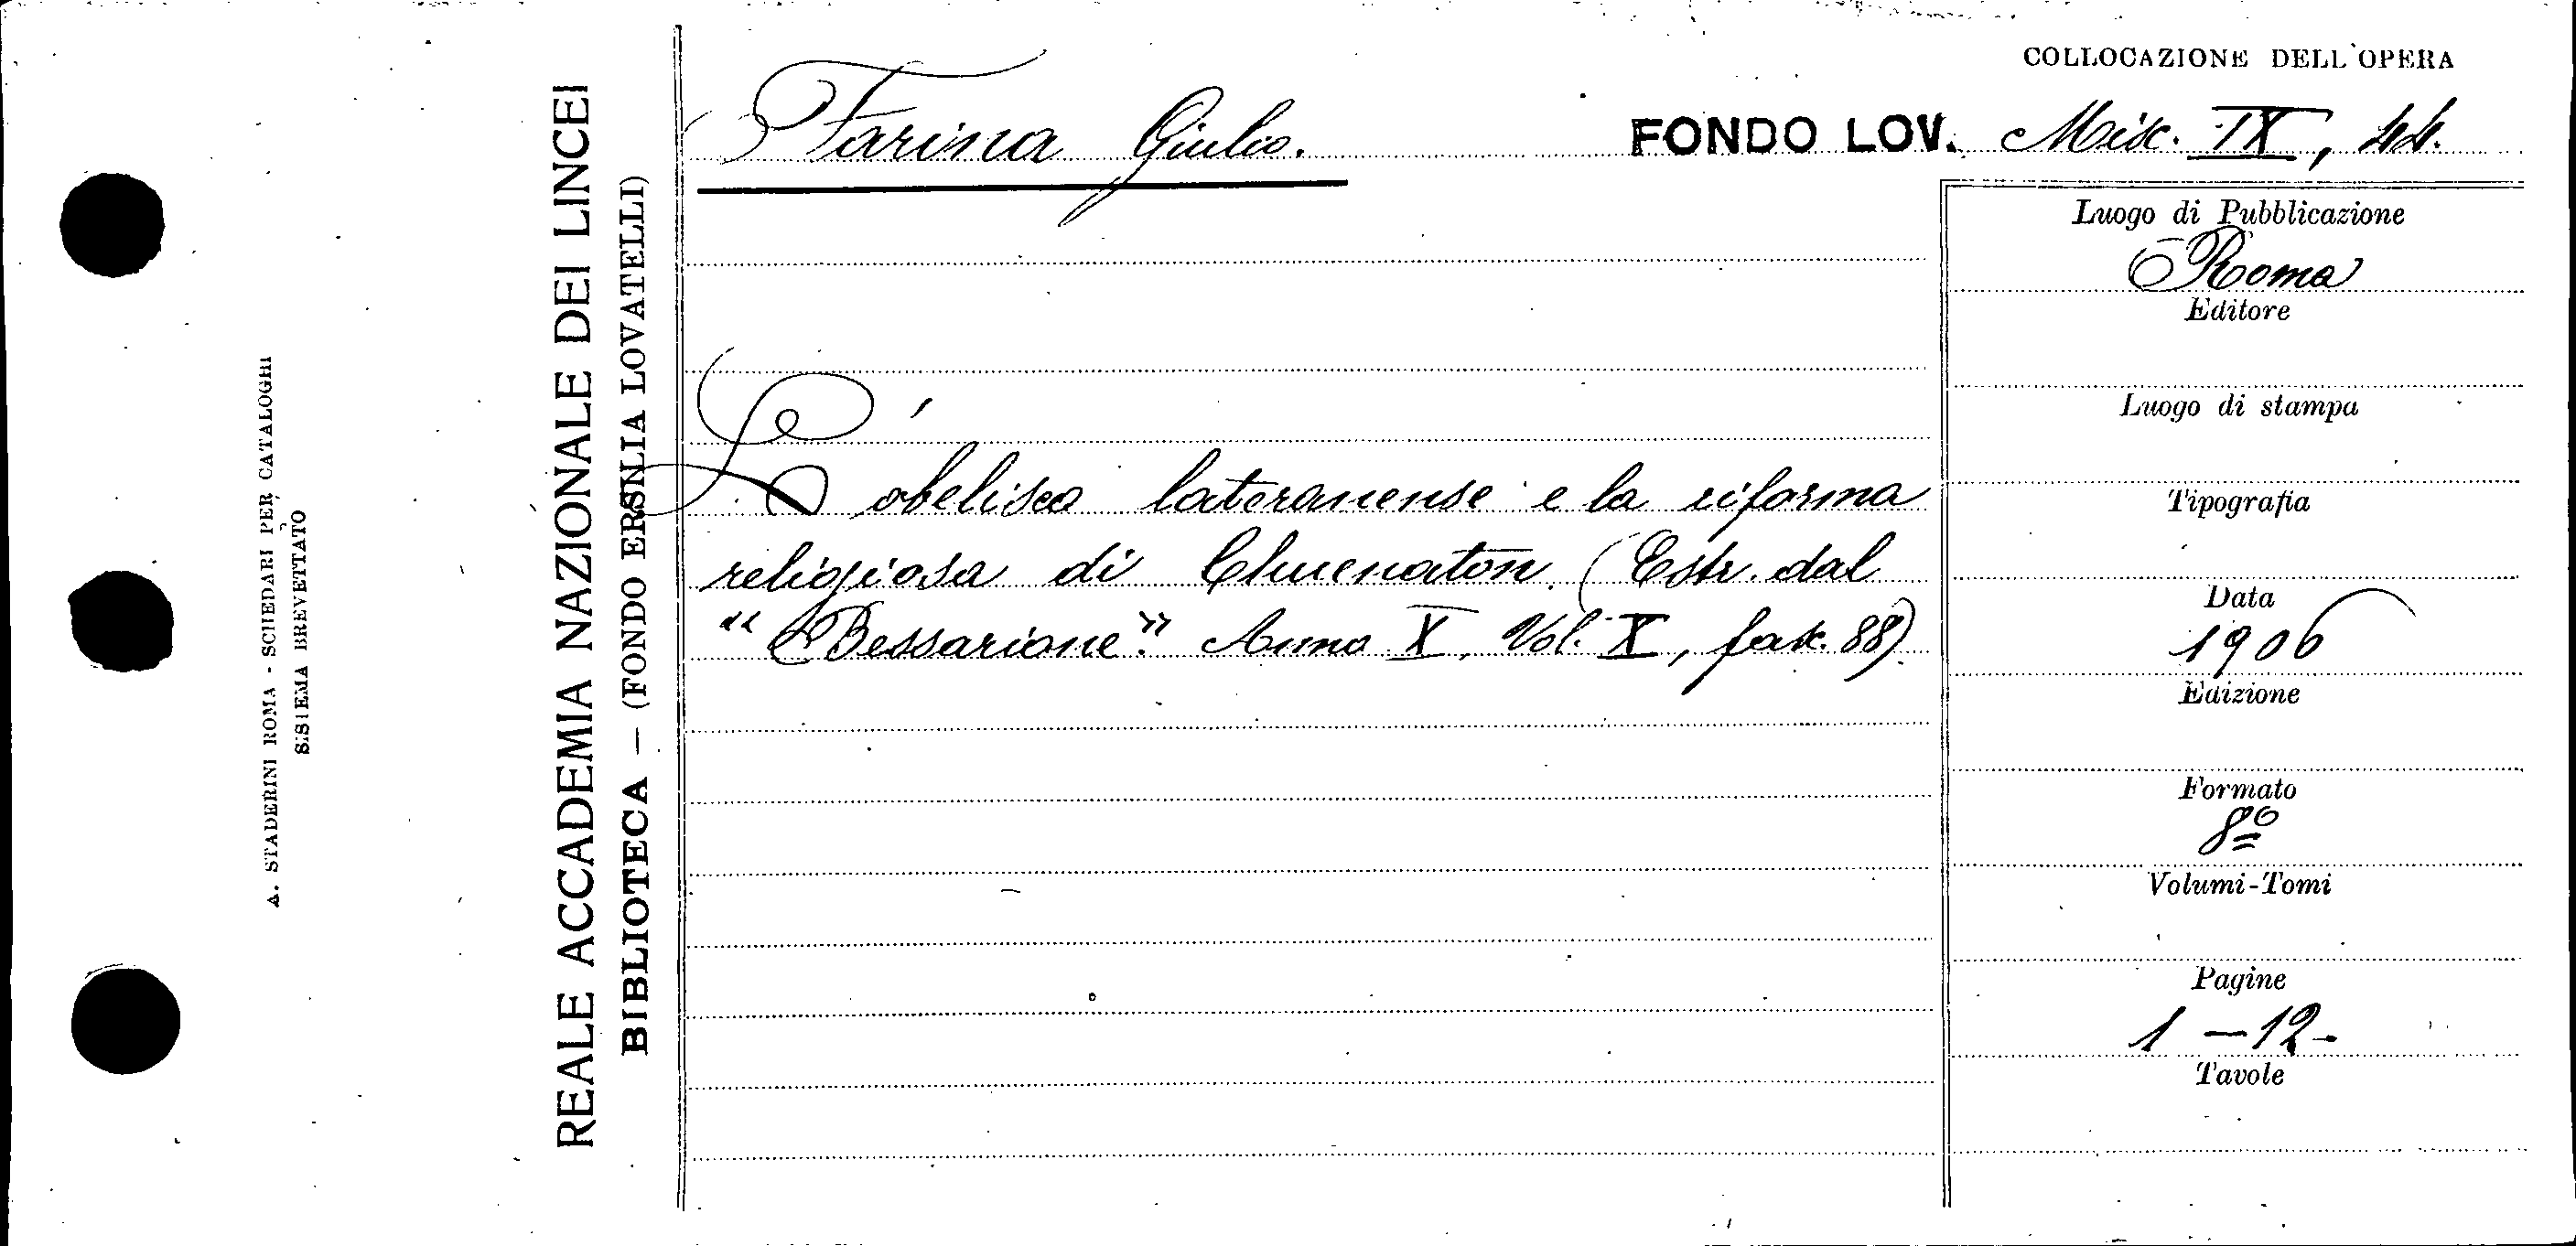 COLLOCAZIONE DELL'OPERA
Farina Giulio.
FONDO LOV. Misc. IX, 44.
L'obelisco lateranense e la riforma
religiosa di Chuenaton. (Estr. dal
"Bessarione". Anno X, Vol. X, fasc. 88).
Luogo di Pubblicazione
Roma
Editore
Luogo di stampa
Tipografia
Data
1906
Edizione
Formato
8º
Volumi-Tomi
Pagine
1 - 12 -
Tavole
REALE ACCADEMIA NAZIONALE DEI LINCEI
BIBLIOTECA — (FONDO ERSILIA LOVATELLI)
A. STADERINI ROMA - SCHEDARI PER CATALOGHI
SISTEMA BREVETTATO